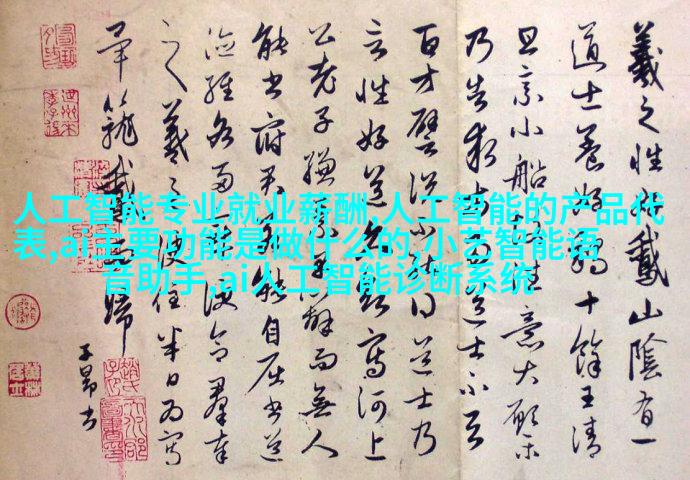 人工智能专业就业薪酬,人工智能的产品代
表,ai主要功能是做什么的,小艺智能语
音助手,ai人工智能诊断系统
羲之性好鵞山陰有一
道士養好鵞十餘王清
旦乘小船故往意大願樂
乃告求市易道士不与
百方譬說不能得道士乃
言性好道久欲寫河上
公老子縑素早辦而無人
能書府君若能自屈書道
德經各兩章便合羣奉
羲之便住半日為寫
畢籠鵞而歸
子昂書